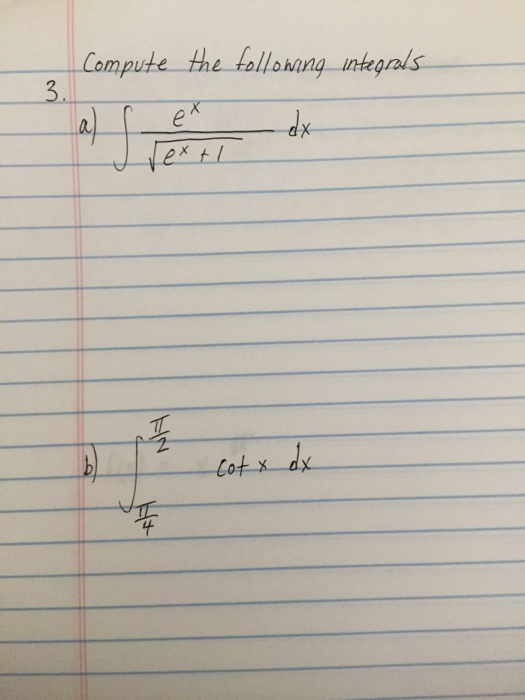 Compute the following integrals
3.
a) ∫ e^x / √(e^x + 1) dx
b) ∫_{π/4}^{π/2} cot x dx